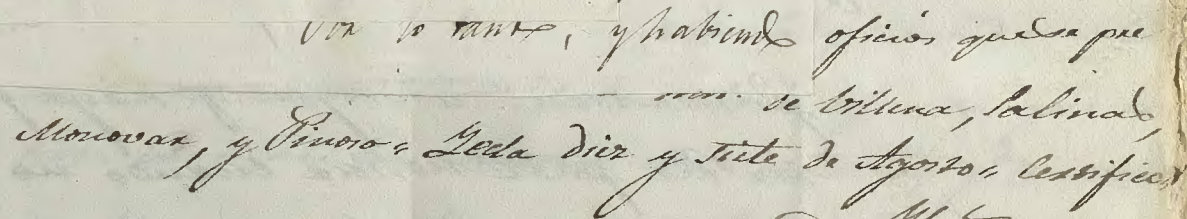 Por lo tanto, y habiendo oficios que se pre
de Villena, Salinas,
Monovar, y Pinoso = Yecla diez y siete de Agosto = Certifico